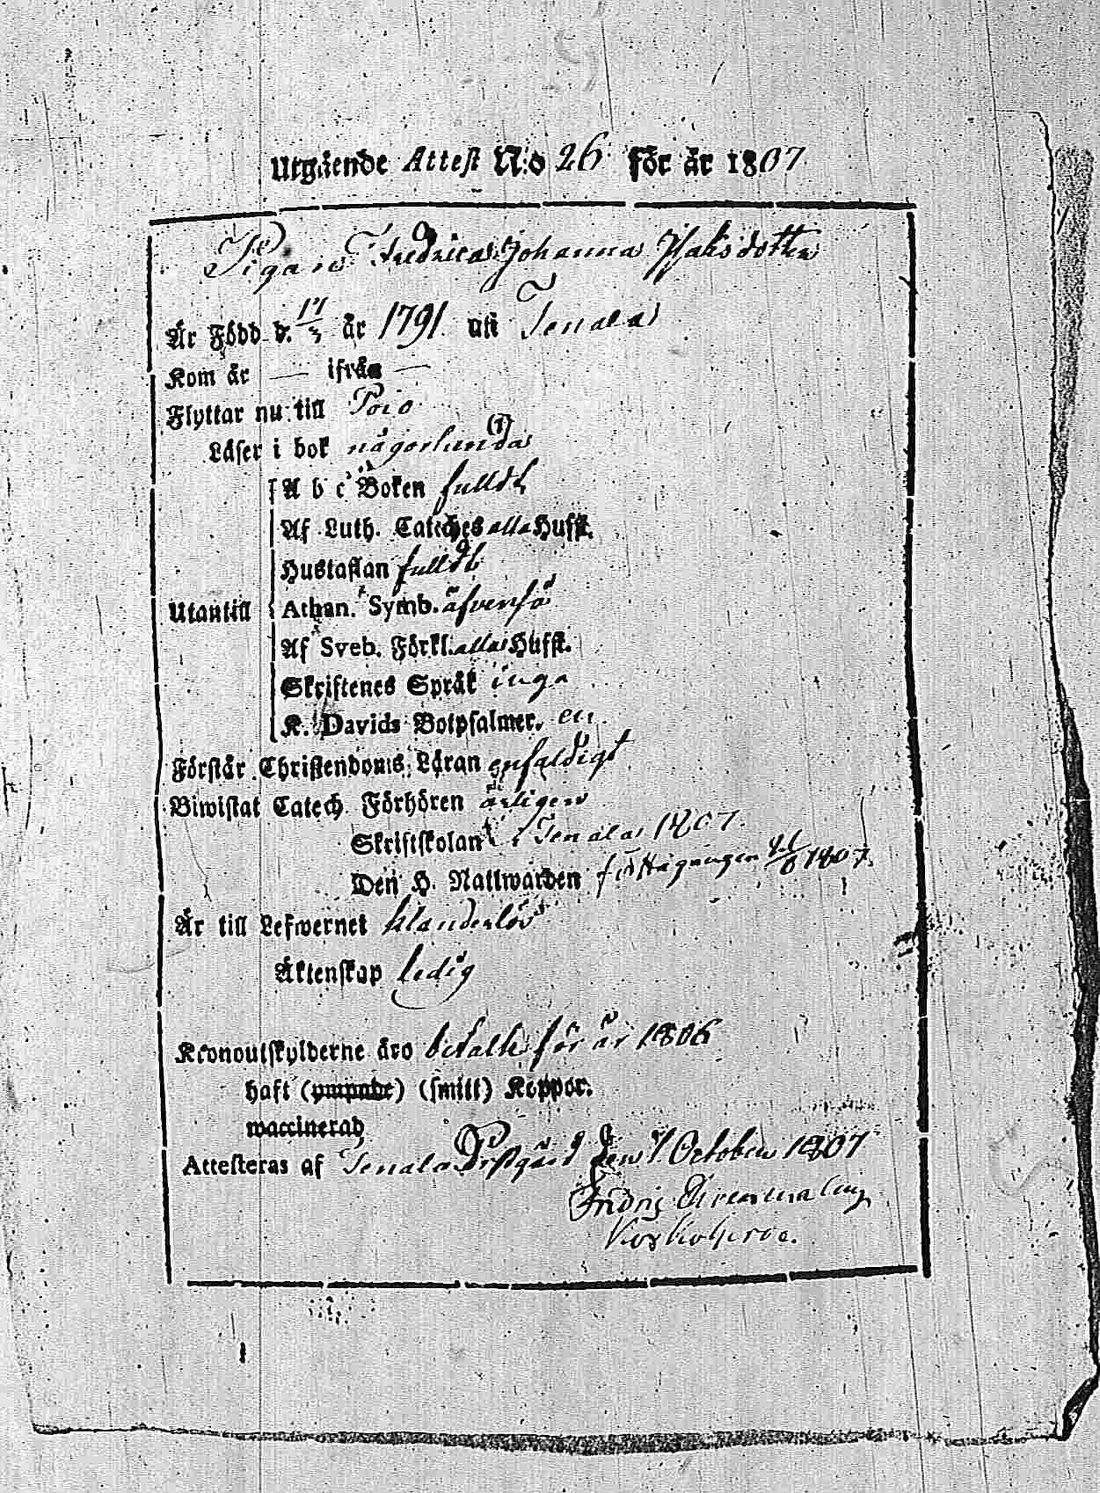 Utgående Attest N:o 26 för år 1807
Pigan Fredrica Johanna Isaksdotter
Är Född d. 17/3 år 1791 uti Tenala
Kom år — ifrån —
Flyttar nu till Poio
Läser i bok någorlunda (1)
A b c Boken fulldt
Af Luth. Cateches alla Hufst.
Hustaflan fulldt
Utantill Athan. Symb. äfvenså
Af Sveb. Förkl. alla Hufst.
Skriftenes Språk inga
K. Davids Botpsalmer. en
Förstår Christendoms Läran enfaldigt
Biwistat Catech. Förhören årligen
Skriftskolan i Tenala 1807.
Den H. Nattwarden 1807.
Är till Lefwernet klanderlös
Äktenskap ledig
Kronoutskylderne äro betalte för år 1806
haft (ympade) (smitt) Koppor.
waccinerad
Attesteras af Tenala Prestgård den 7 October 1807